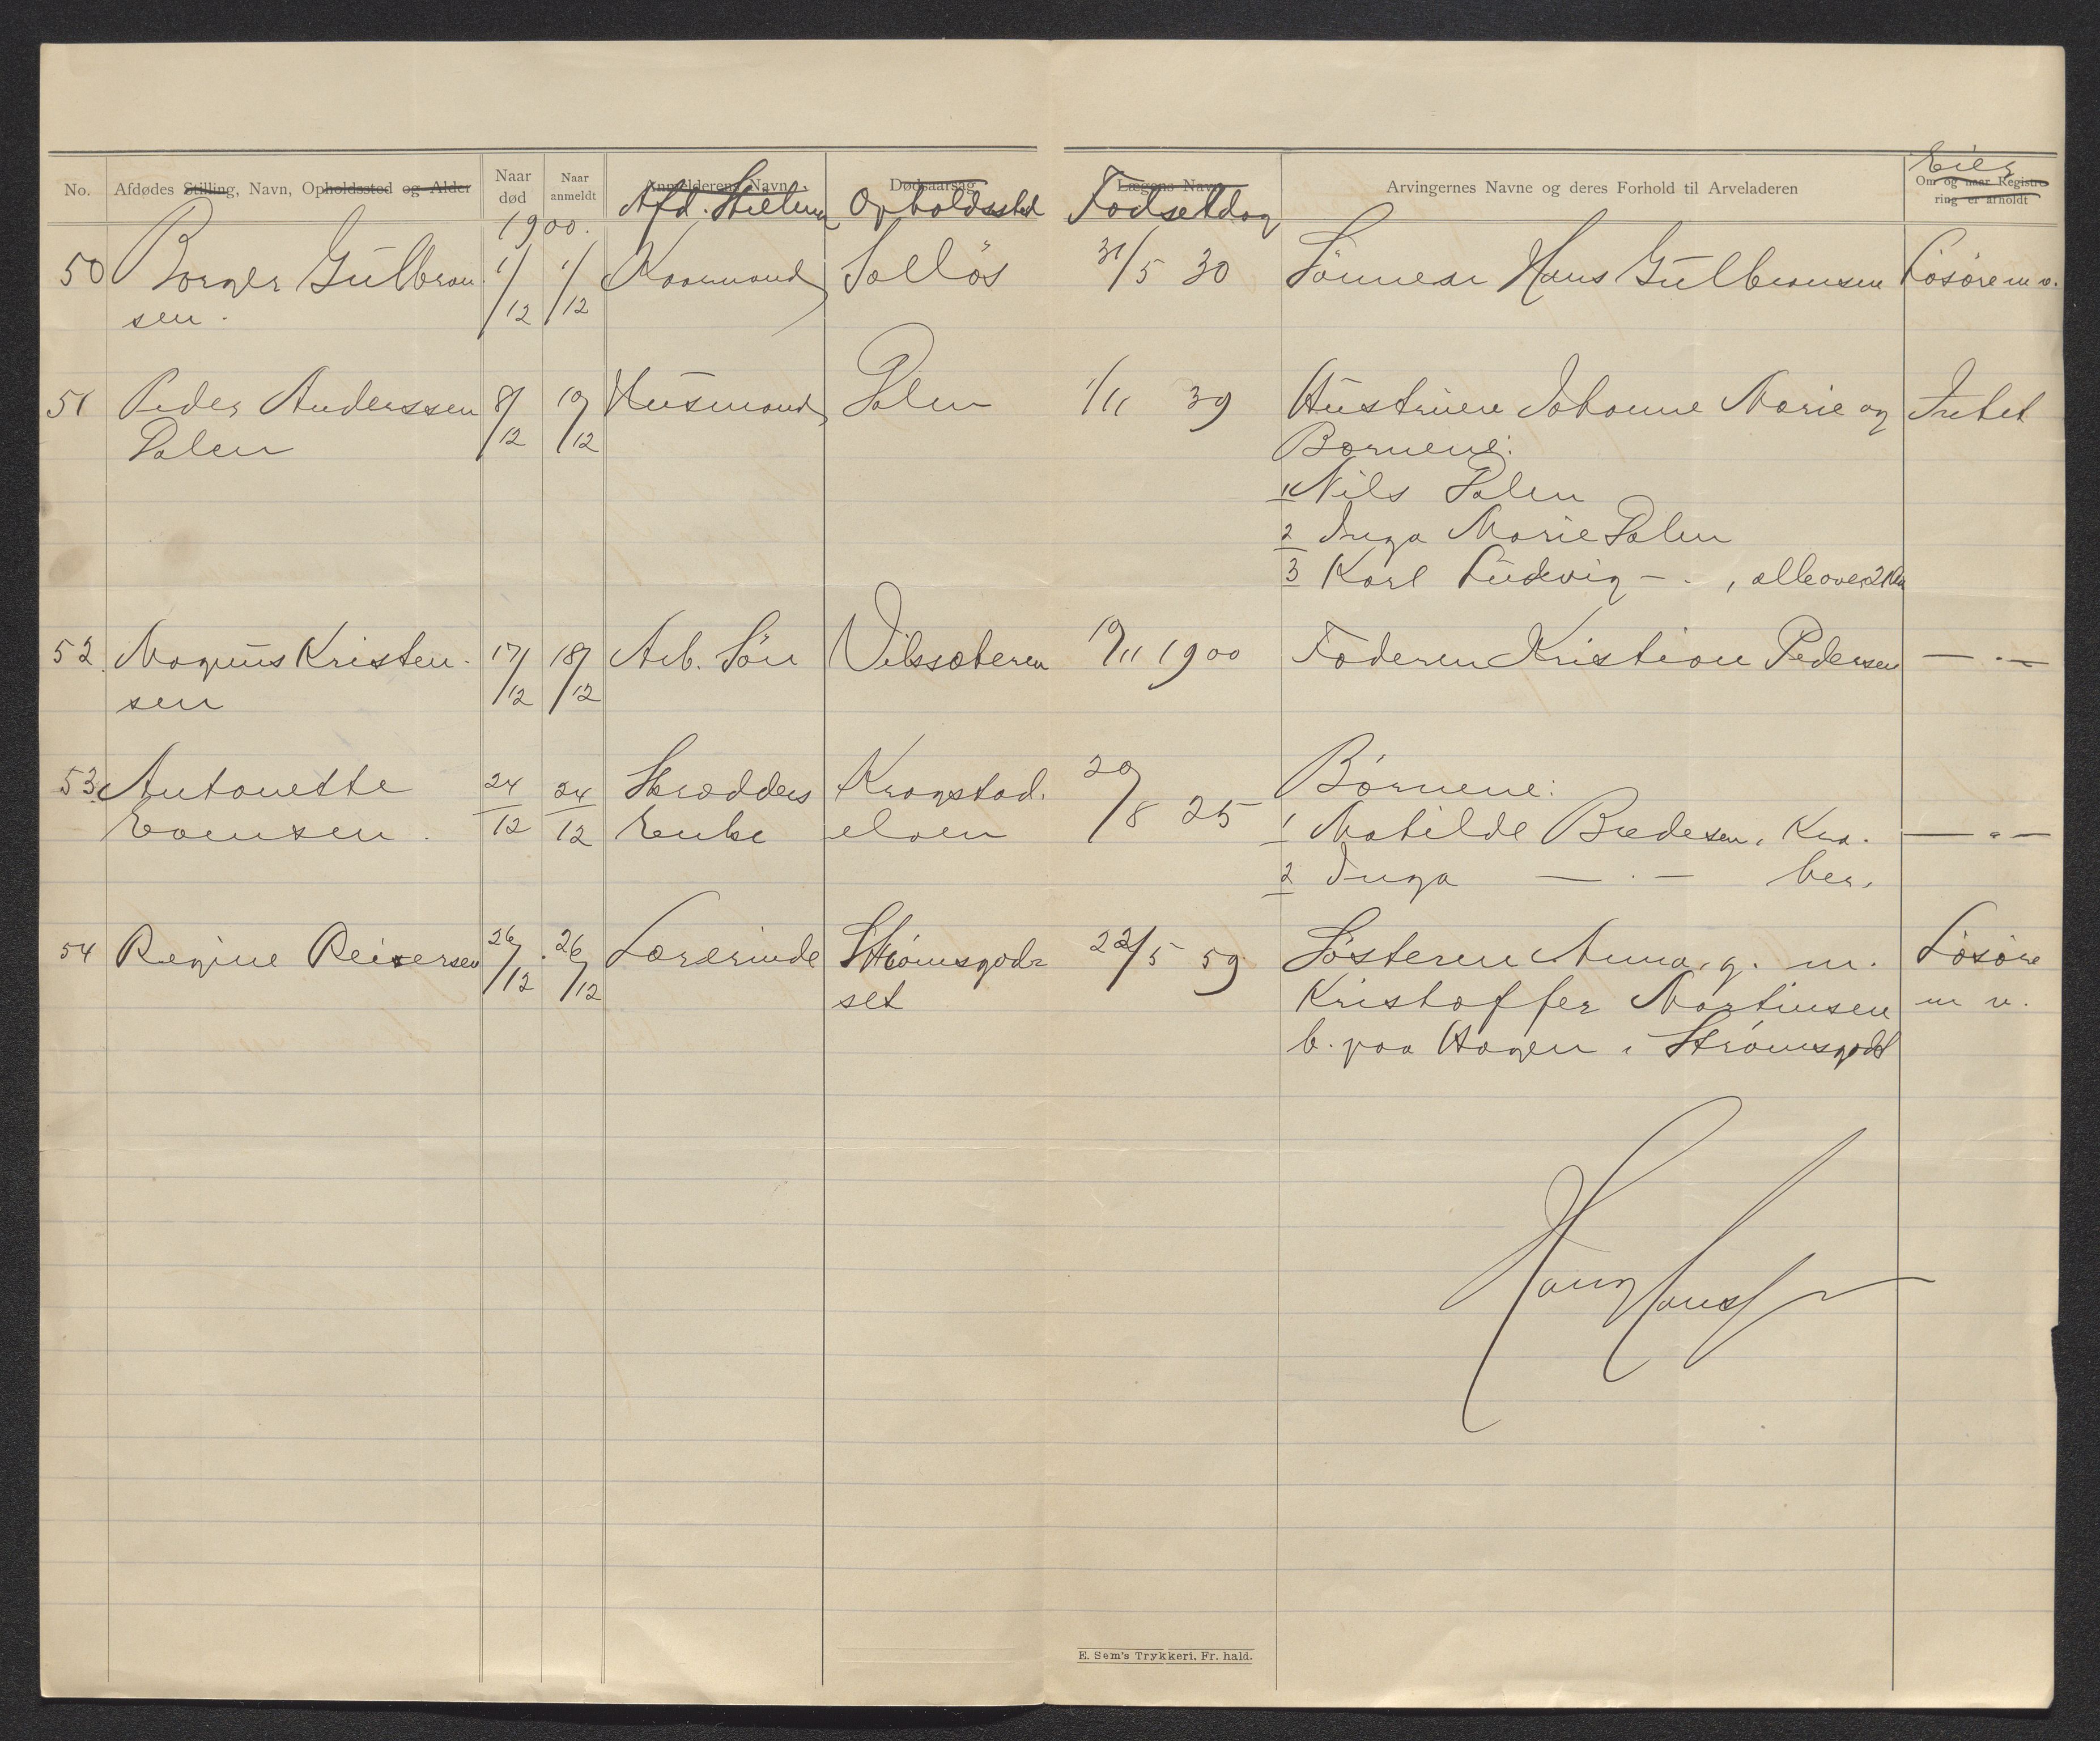 No.
Afdødes Stilling, Navn, Opholdssted og Alder
Naar død
Naar anmeldt
Anmelderens Navn.
Afd. Stilling
Dødsaarsag
Opholdssted
Lægens Navn
Fødselsdag
Arvingernes Navne og deres Forhold til Arveladeren
Eier
Om og naar Registre-
ring er afholdt
1900.
50 Borger Gulbran- 1/12 1/12 Kaarmand Solløs 31/5 30 Sønnen Hans Gulbransen Løsøre m v.
sen.
51 Peder Anderssen 8/12 10/12 Husmand Dalen 1/11 39 Hustruen Johanne Marie og Intet
Dalen Børnene:
1 Nils Dalen
2 Inga Marie Dalen
3 Karl Ludvig - . , alle over 21 Aar
52. Magnus Kristen- 17/12 18/12 Arb. Søn Vilssæteren 19/11 1900 Faderen Kristian Pedersen — . —
sen
53. Antonette 24/12 24/12 Skrædders Kragstad- 29/8 25 Børnene:
Evensen. Enke elven 1 Matilde Bredesen, Kra. — „ —
2 Inga — . — ber.
54 Regine Reiersen 26/12 26/12 Lærerinde Strømsgod- 22/5 59 Søsteren Anna, g. m. Løsøre
set Kristoffer Martinsen m v.
b. paa Hagen i Strømsgodset
E. Sem's Trykkeri. Fr. hald.